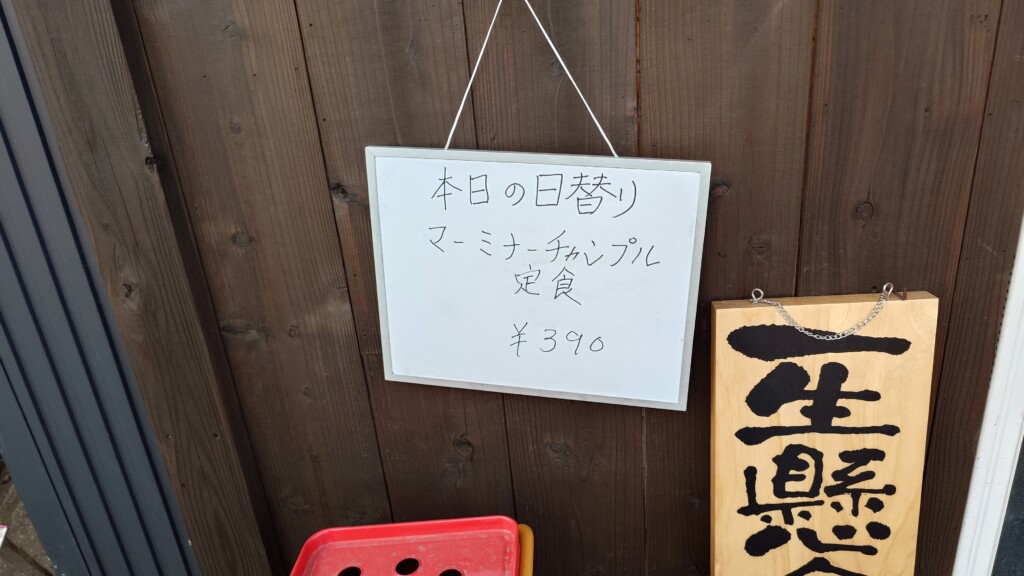 本日の日替り
マーミナーチャンプル
定食
¥390
一生懸命